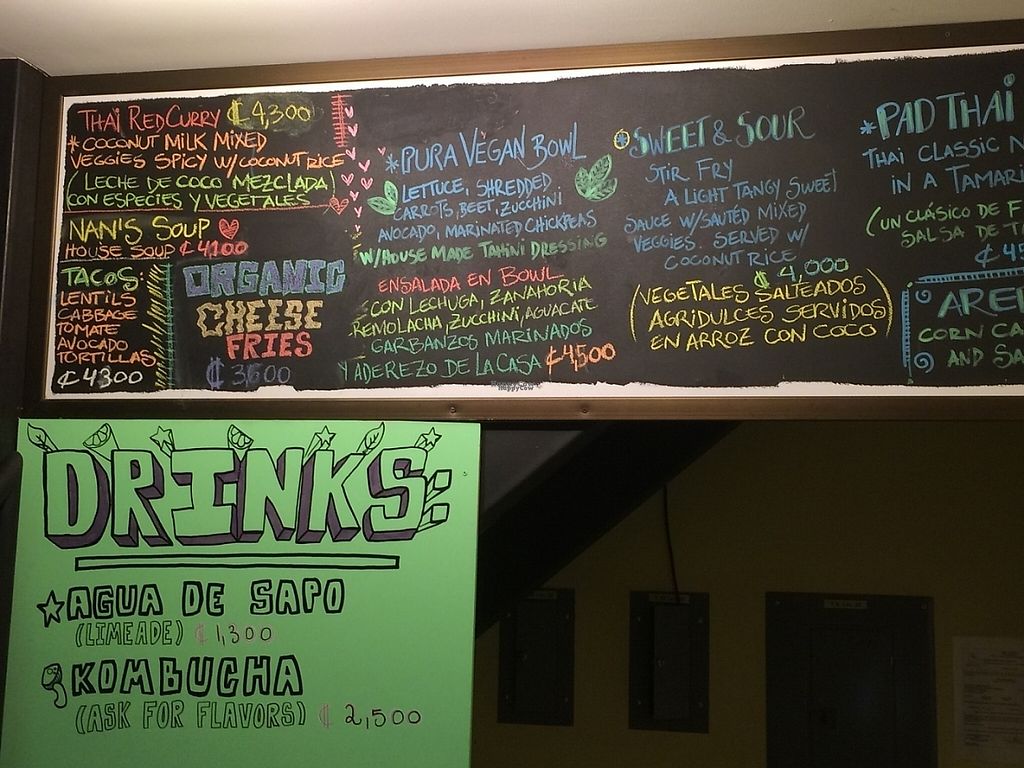 THAI RED CURRY ₡ 4,300
* COCONUT MILK MIXED
VEGGIES SPICY W/COCONUT RICE
(LECHE DE COCO MEZCLADA)
CON ESPECIES Y VEGETALES
NAN'S SOUP
HOUSE SOUP ₡ 4100
TACOS:
LENTILS
CABBAGE
TOMATE
AVOCADO
TORTILLAS
₡ 4300
ORGANIC
CHEESE
FRIES
₡ 3,600
*PURA VEGAN BOWL
LETTUCE, SHREDDED
CARROTS, BEET, ZUCCHINI
AVOCADO, MARINATED CHICKPEAS
W/HOUSE MADE TAHINI DRESSING
ENSALADA EN BOWL
CON LECHUGA, ZANAHORIA
REMOLACHA, ZUCCHINI, AGUACATE
GARBANZOS MARINADOS
Y ADEREZO DE LA CASA ₡ 4,500
*SWEET & SOUR
STIR FRY
A LIGHT TANGY SWEET
SAUCE W/SAUTÉD MIXED
VEGGIES. SERVED W/
COCONUT RICE
₡ 4,000
(VEGETALES SALTEADOS
AGRIDULCES SERVIDOS
EN ARROZ CON COCO)
*PAD THAI
THAI CLASSIC N
IN A TAMARI
(UN CLÁSICO DE F
SALSA DE TA
₡ 45
ARE
CORN CA
AND SA
HappyCow
DRINKS:
AGUA DE SAPO
(LIMEADE) ₡ 1,300
KOMBUCHA
(ASK FOR FLAVORS) ₡ 2,500